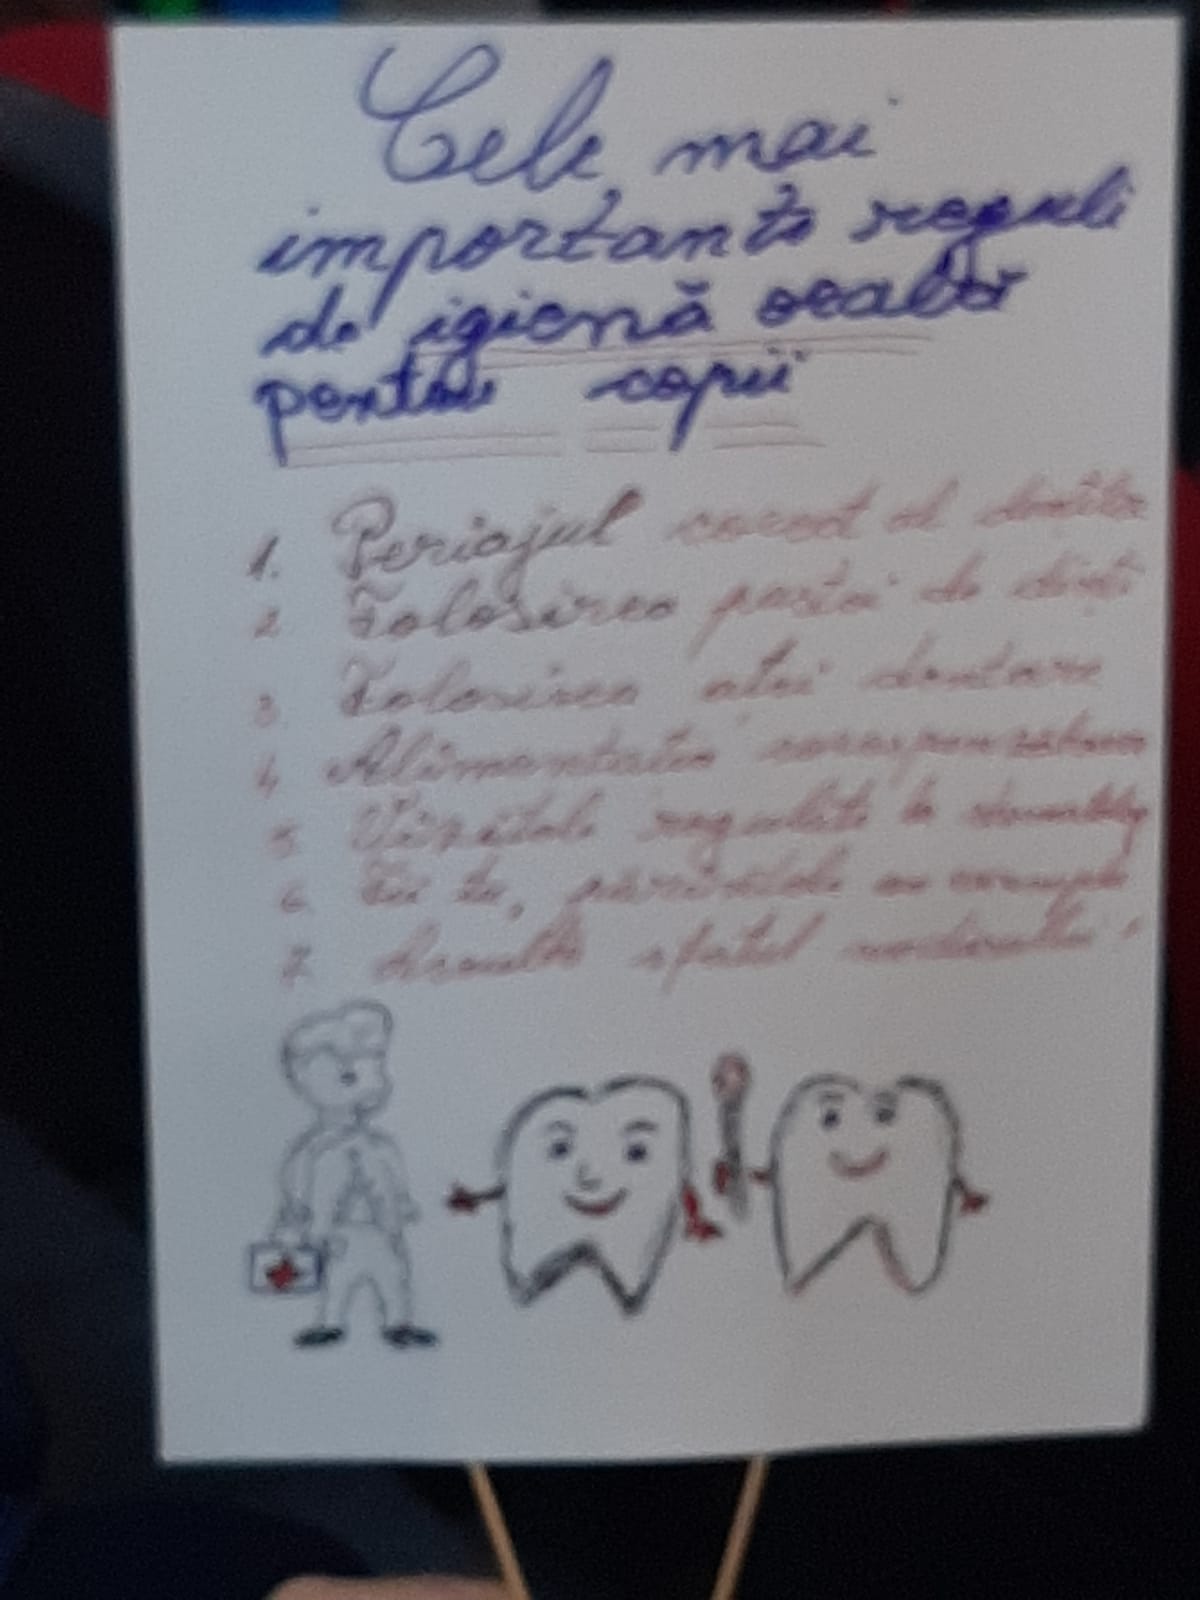 Cele mai
importante reguli
de igienă orală
pentru copii
1. Periajul corect al dinților
2. Folosirea pastei de dinți
3. Folosirea aței dentare
4. Alimentația corespunzătoare
5. Vizitele regulate la stomatolog
6. Fii tu, părintele un exemplu
7. Ascultă sfatul medicului